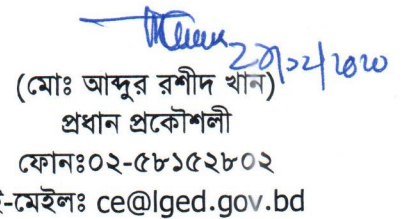 ২৯/১২/২০২০
(মোঃ আব্দুর রশীদ খান)
প্রধান প্রকৌশলী
ফোনঃ০২-৫৮১৫২৮০২
ই-মেইলঃ ce@lged.gov.bd